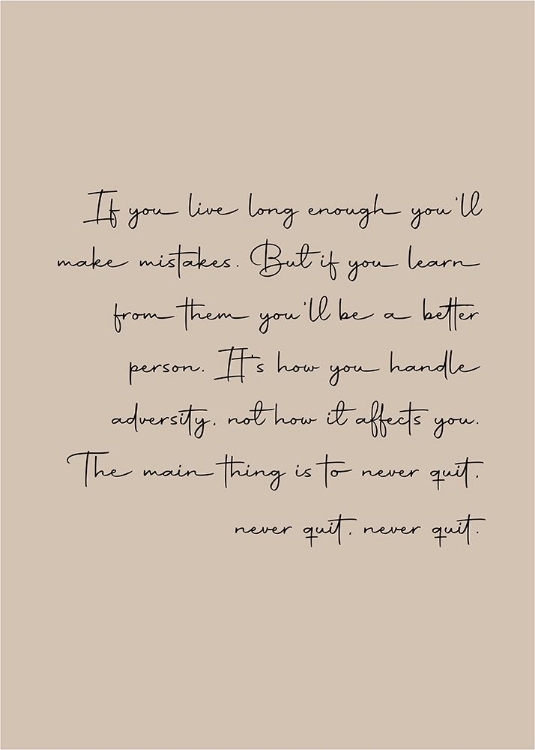 If you live long enough you'll
make mistakes. But if you learn
from them you'll be a better
person. It's how you handle
adversity, not how it affects you.
The main thing is to never quit,
never quit, never quit.